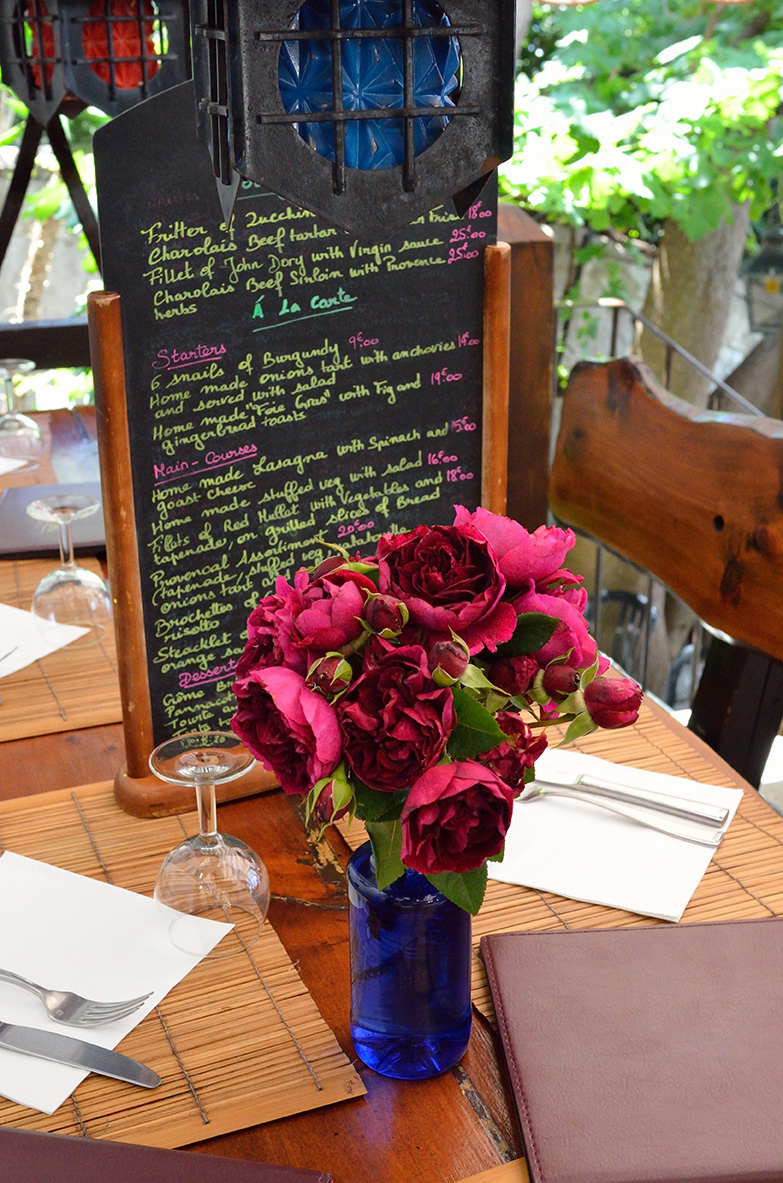 Fritter of Zucchin
18€00
Charolais Beef tartar
Fries
25€00
Fillet of John Dory with Virgin sauce
25€00
Charolais Beef Sirloin with Provence
herbs
Á La Carte
Starters
6 snails of Burgundy 9€00
Home made onions tart with anchovies 14€00
and served with salad
Home made "Foie Gras" with Fig and 19€00
gingerbread toasts
Main-Courses
Home made Lasagna with Spinach and 15€00
goast cheese
Home made stuffed veg with salad 16€00
Filets of Red Mullet with Vegetables and 18€00
tapenade, on grilled slices of Bread
Provencal Assortiment 20€00
(tapenade, stuffed veg, ratatouille
onions tart a
Brochettes of
risotto
Steacklet
orange sa
Dessert
Crème Br
Pannacot
Tourte au